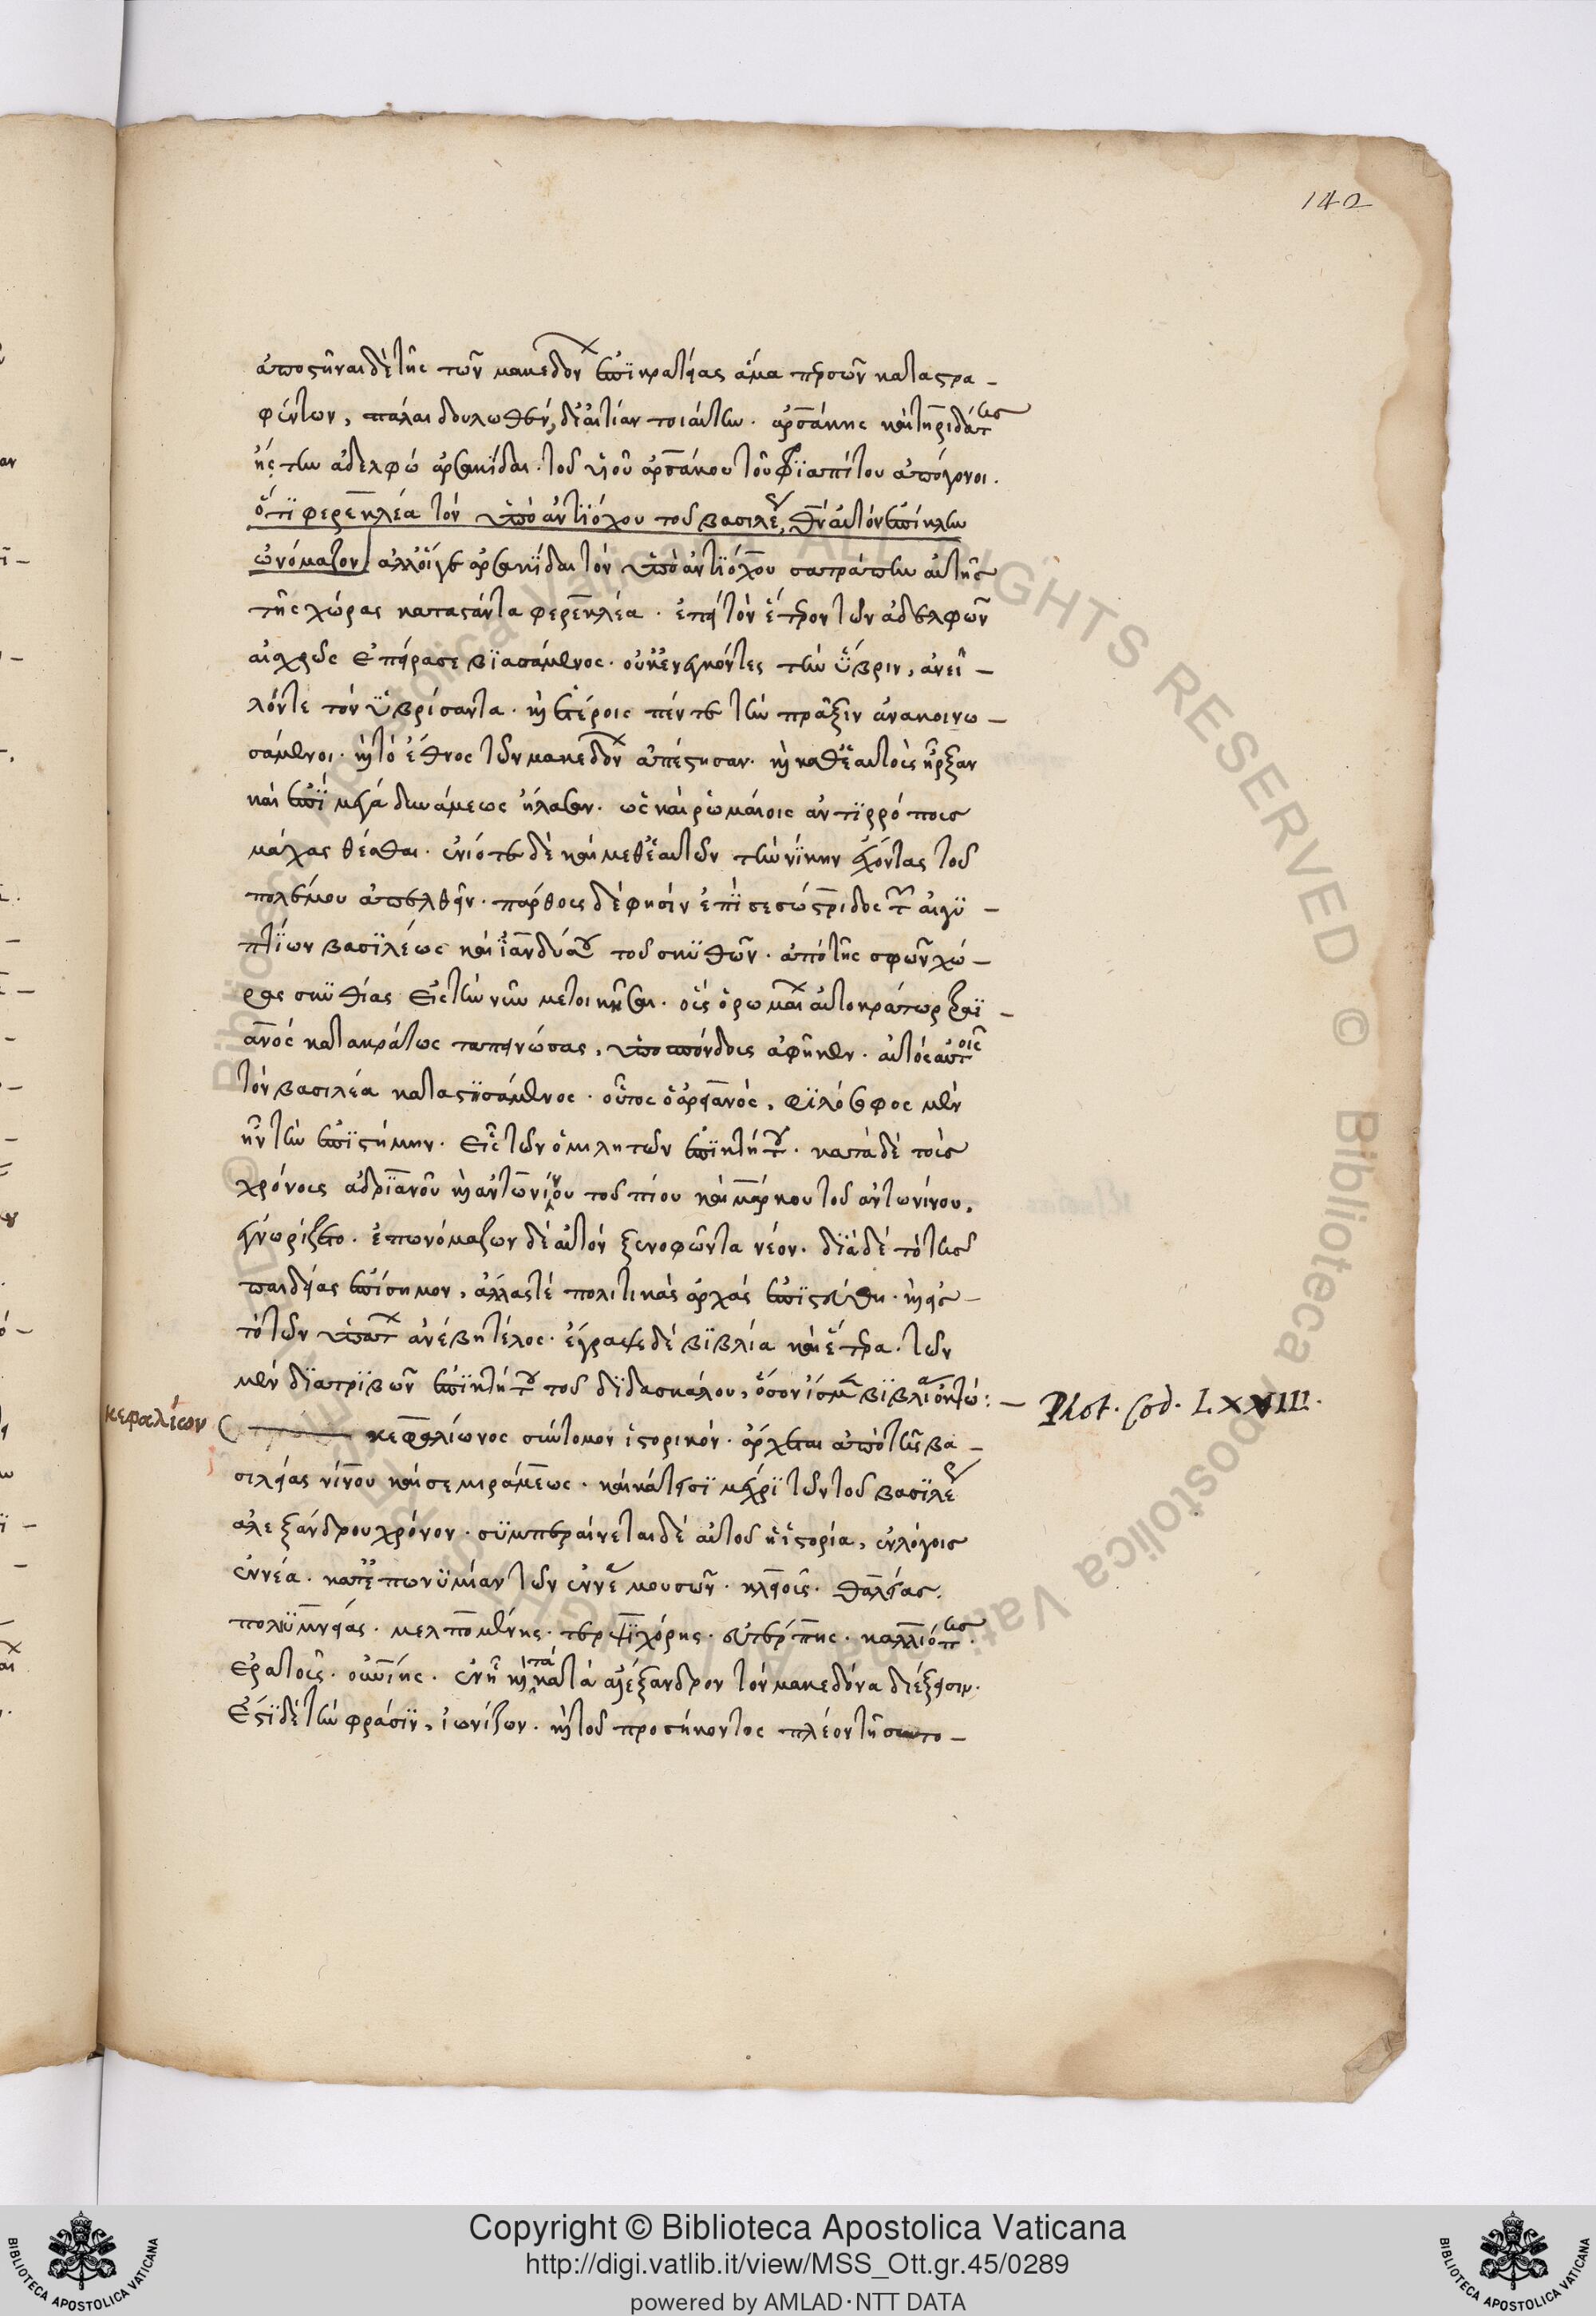 142
ἀποστῆναι δὲ τῆς τῶν μακεδόν ἐπικρατείας ἅμα περσῶν καταστρα-
φέντων, πάλαι δουλωθέν, δι' αἰτίαν τοιαύτην. ἀρσάκης καὶ τηριδάτης
ἤστην ἀδελφώ ἀρσακίδαι. τοῦ υἱοῦ ἀρσάκου τοῦ φριαπίτου ἀπόγονοι.
ὅτι φερεκλέα τὸν ὑπὸ ἀντιόχου τοῦ βασιλέ
ὠνόμαζον ἀλλ' οἵ γε ἀρσακίδαι τὸν ὑπὸ ἀντιόχου σατράπην αὐτῆς
τῆς χώρας καταστάντα φερεκλέα. ἐπεὶ τὸν ἕτερον τῶν ἀδελφῶν
αἰσχρῶς ἐπείρασε βιασάμενος. οὐκ ἐνεγκόντες τὴν ὕβριν, ἀνεῖ-
λόν τε τὸν ὑβρίσαντα. καὶ ἑτέροις πέντε τὴν πρᾶξιν ἀνακοινω-
σάμενοι. καὶ τὸ ἔθνος τῶν μακεδόν ἀπέστησαν. καὶ καθ' ἑαυτοὺς ἦρξαν
καὶ ἐπὶ μέγα δυνάμεως ἤλασαν. ὡς καὶ ῥωμαίοις ἀντιρρόπους
μάχας θέσθαι. ἐνίοτε δὲ καὶ μεθ' ἑαυτῶν τὴν νίκην ἔχοντας τοῦ
πολέμου ἀπελθεῖν. πάρθους δέ φησιν ἐπὶ σεσώστριδος τοῦ αἰγυ-
πτίων βασιλέως καὶ ἰανδύσου τοῦ σκυθῶν. ἀπὸ τῆς σφῶν χώ-
ρας σκυθίας εἰς τὴν νῦν μετοικῆσαι. οὓς ὁ ῥωμαί αὐτοκράτωρ τραϊ-
ανὸς κατακράτως ταπεινώσας, ὑποσπόνδους ἀφῆκεν. αὐτὸς αὐτοῖς
τὸν βασιλέα καταστησάμενος. οὗτος ὁ ἀρειανός, φιλόσοφος μὲν
ἦν τὴν ἐπιστήμην. εἷς τῶν ὁμιλητῶν ἐπικτήτου. κατὰ δὲ τοὺς
χρόνους ἀδριανοῦ καὶ ἀντωνίνου τοῦ πίου καὶ μάρκου τοῦ ἀντωνίνου.
ἐγνωρίζετο. ἐπωνόμαζον δὲ αὐτὸν ξενοφῶντα νέον. διὰ δὲ τὸ τῆς
παιδείας ἐπίσημον, ἄλλας τέ πολιτικὰς ἀρχὰς ἐπιστεύθη. καὶ εἰς-
τὸ τῶν ὑπατ ἀνέβη τέλος. ἔγραψε δὲ βιβλία καὶ ἕτερα. τῶν
μὲν διατριβῶν ἐπικτήτου τοῦ διδασκάλου, ὅσον ἴσμεν βιβλία ὀκτώ:- Phot. Cod. LXXVIII.
κεφαλίων
κεφαλίωνος σύντομον ἱστορικόν. ἄρχεται ἀπὸ τῆς βα-
σιλείας νίνου καὶ σεμιράμεως. καὶ κάτεισι μέχρι τῶν τοῦ βασιλέ
ἀλεξάνδρου χρόνον. συμπεραίνεται δὲ αὐτοῦ ἡ ἱστορία, ἐν λόγοις
ἐννέα. κατ' ἐπωνυμίαν τῶν ἐννέα μουσῶν. κλειοῦς. θαλείας.
πολυμνείας. μελπομένης. τερψιχόρης. εὐτέρπης. καλλιόπης.
ἐρατοῦς. οὐρανίης. ἐν ᾗ καὶ τὰ κατὰ ἀλέξανδρον τὸν μακεδόνα διέξεισιν.
ἔστι δὲ τὴν φράσιν, ἰωνίζων. καὶ τοῦ προσήκοντος πλέον τῇ συντο-
Copyright © Biblioteca Apostolica Vaticana
http://digi.vatlib.it/view/MSS_Ott.gr.45/0289
powered by AMLAD·NTT DATA
BIBLIOTECA APOSTOLICA VATICANA
BIBLIOTECA APOSTOLICA VATICANA